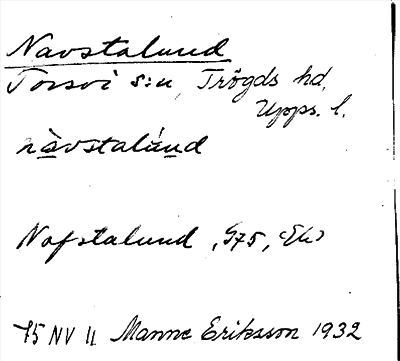 Navstalund
Torsvi s:n, Trögds hd,
Upps. l.
nàvstalúnd
Nafstalund, G75, (Ek)
75 NV 11 Manne Eriksson 1932